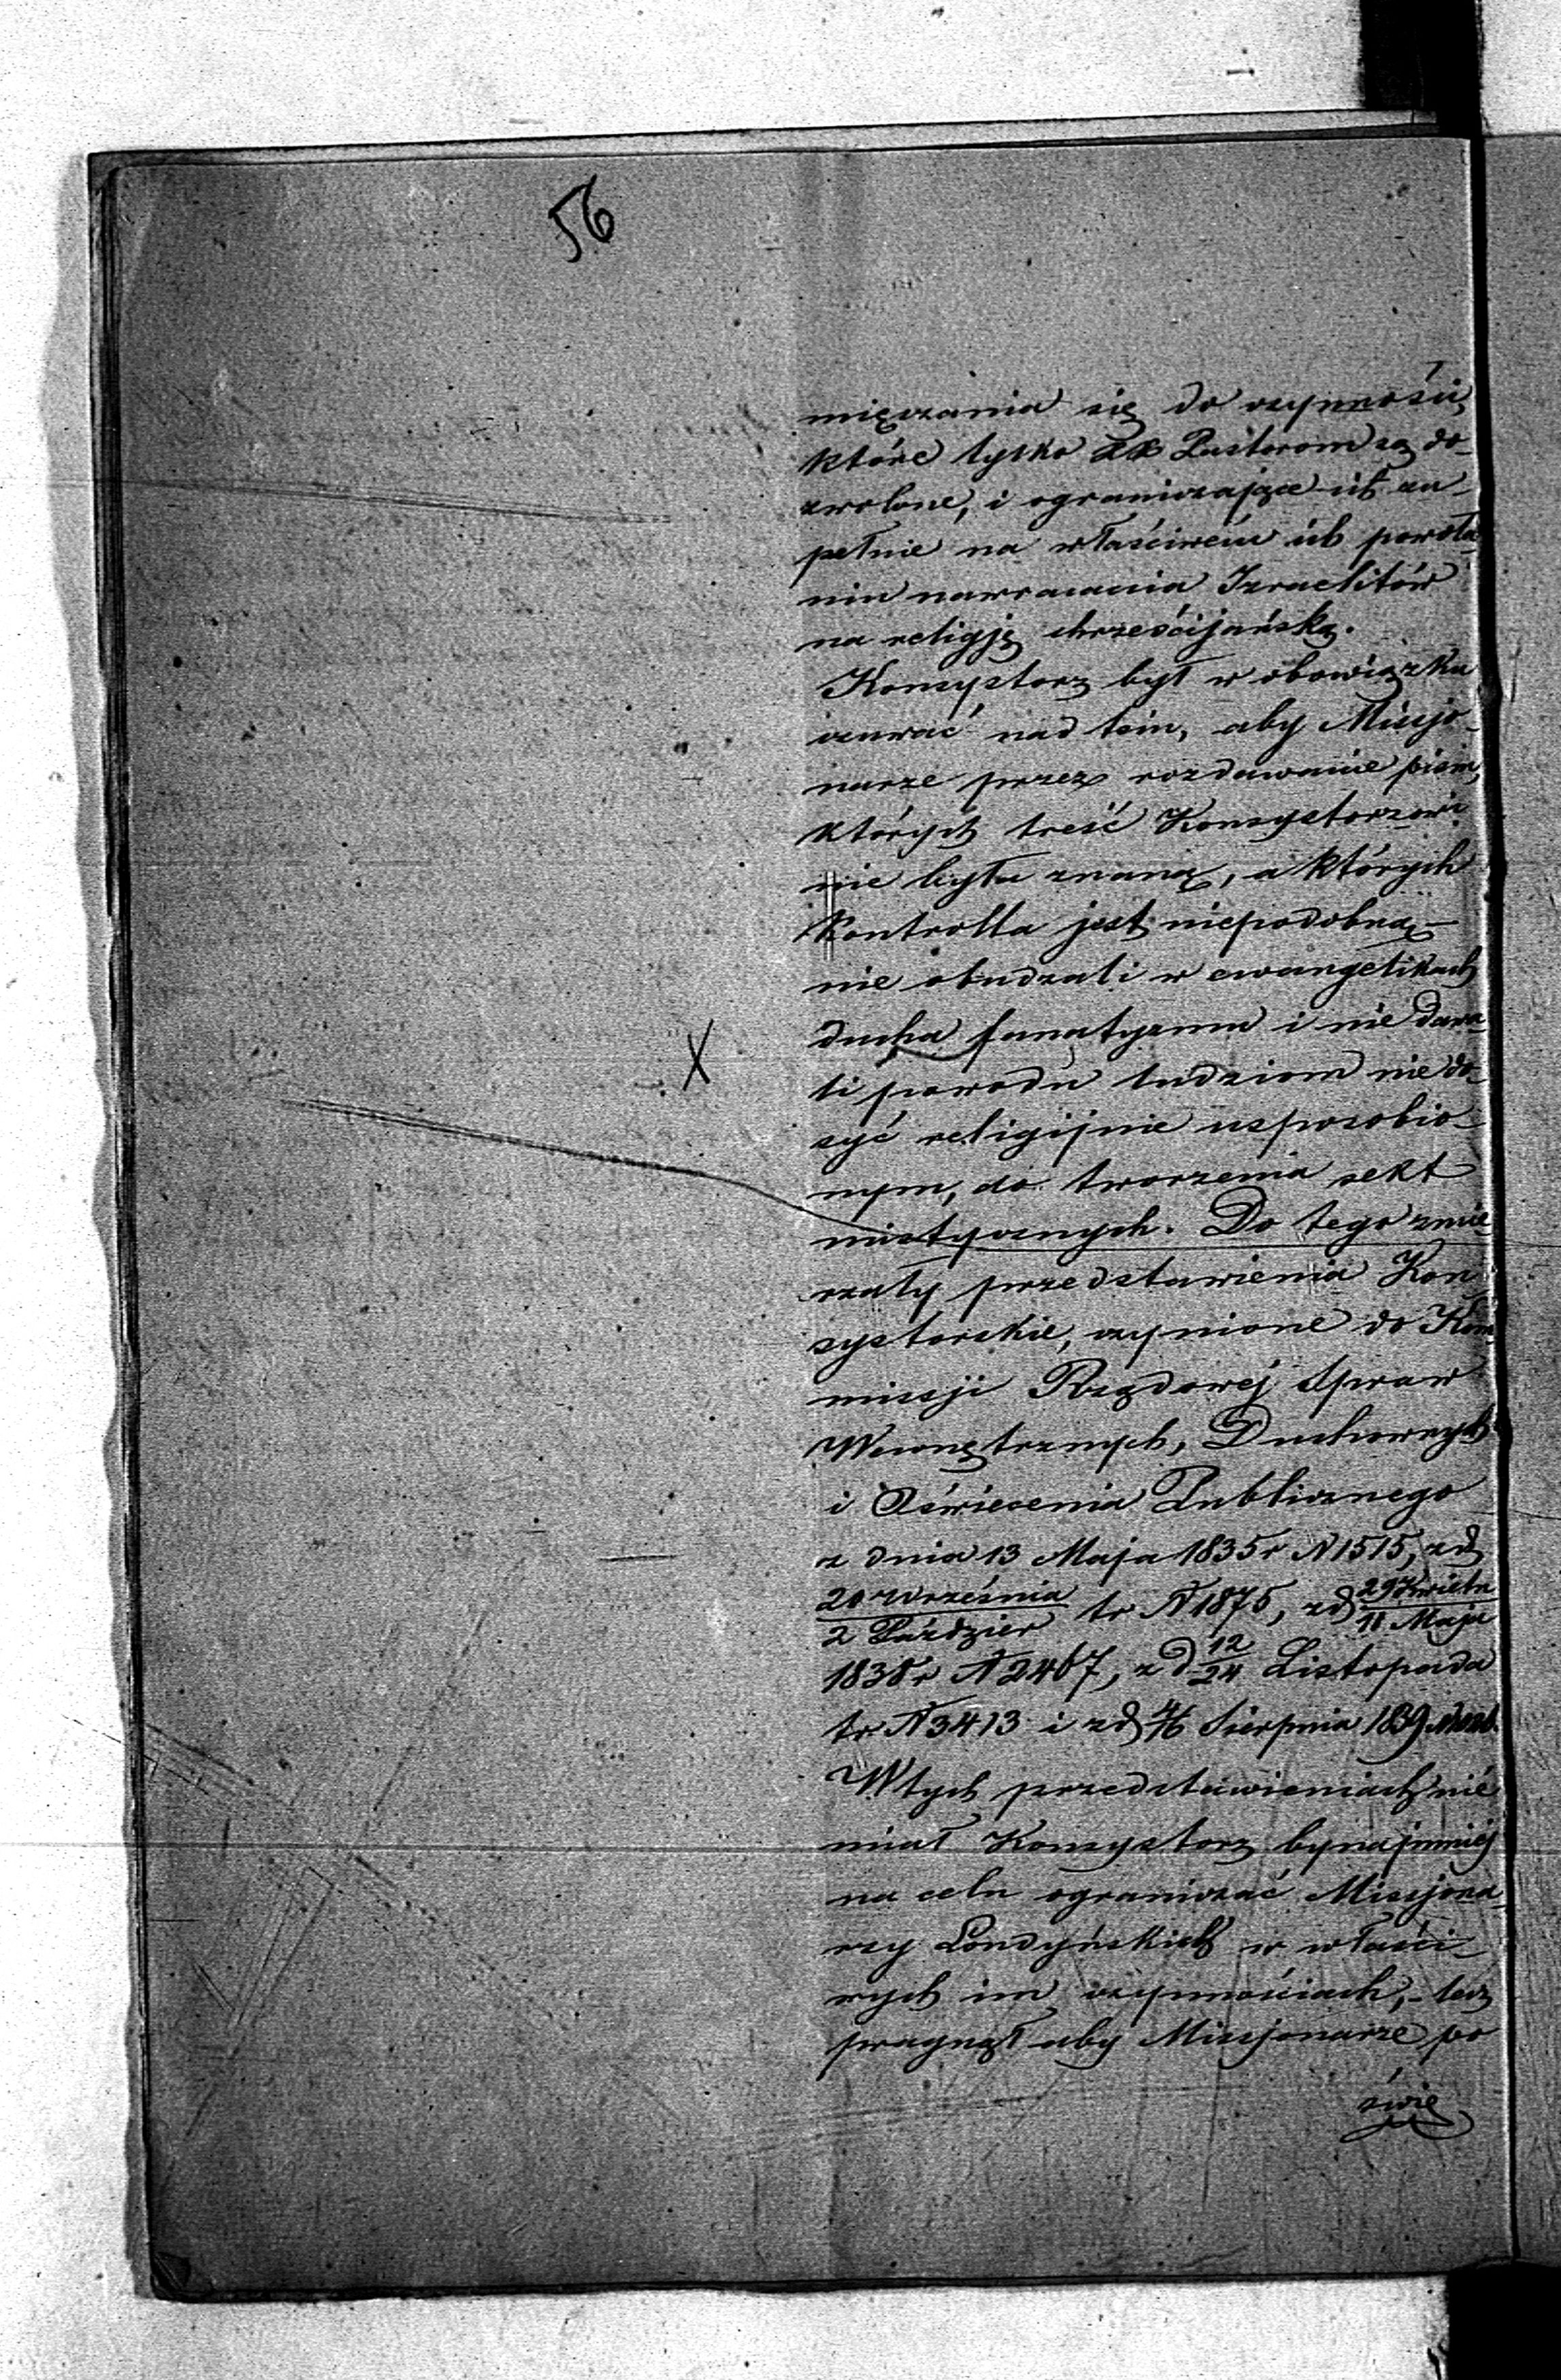 56
mięszania się do czynności,
które tylko XX Pastorom są do-
zwolone, i ograniczając ich zu-
pełnie na właściwém ich powoła-
niu nawracania Izraelitów
na religję chrześcijańską.
Konsystorz był w obowiązku
czuwać nad tem, aby Missjo-
narze przez rozdawanie pism,
których treść Konsystorzowi
nie była znaną, a których
Kontrolla jest niepodobną –
nie obudzali w ewangelikach
ducha fanatyzmu i nie dawa-
li powodu ludziom nie do-
syć religijnie usposobio-
nym, do tworzenia sekt
mistycznych. Do tego zmie-
rzały przedstawienia Kon-
systorskie, czynione do Kom-
missji Rządowej Spraw
Wewnętrznych, Duchownych
i Oświecenia Publicznego
z dnia 13 Maja 1835 r N 1515, z d
20 Września / 2 Paździer tr N 1875, z d 29 Kwietn / 11 Maja
1838 r N 2467, z d 12/24 Listopada
tr N 3413 i z d 4/16 Sierpnia 1839
W tych przedstawieniach nie
miał Konsystorz bynajmniej
na celu ograniczać Missjona-
rzy Londyńskich w właści-
wych im czynnościach, – lecz
pragnął aby Missjonarze po
świę